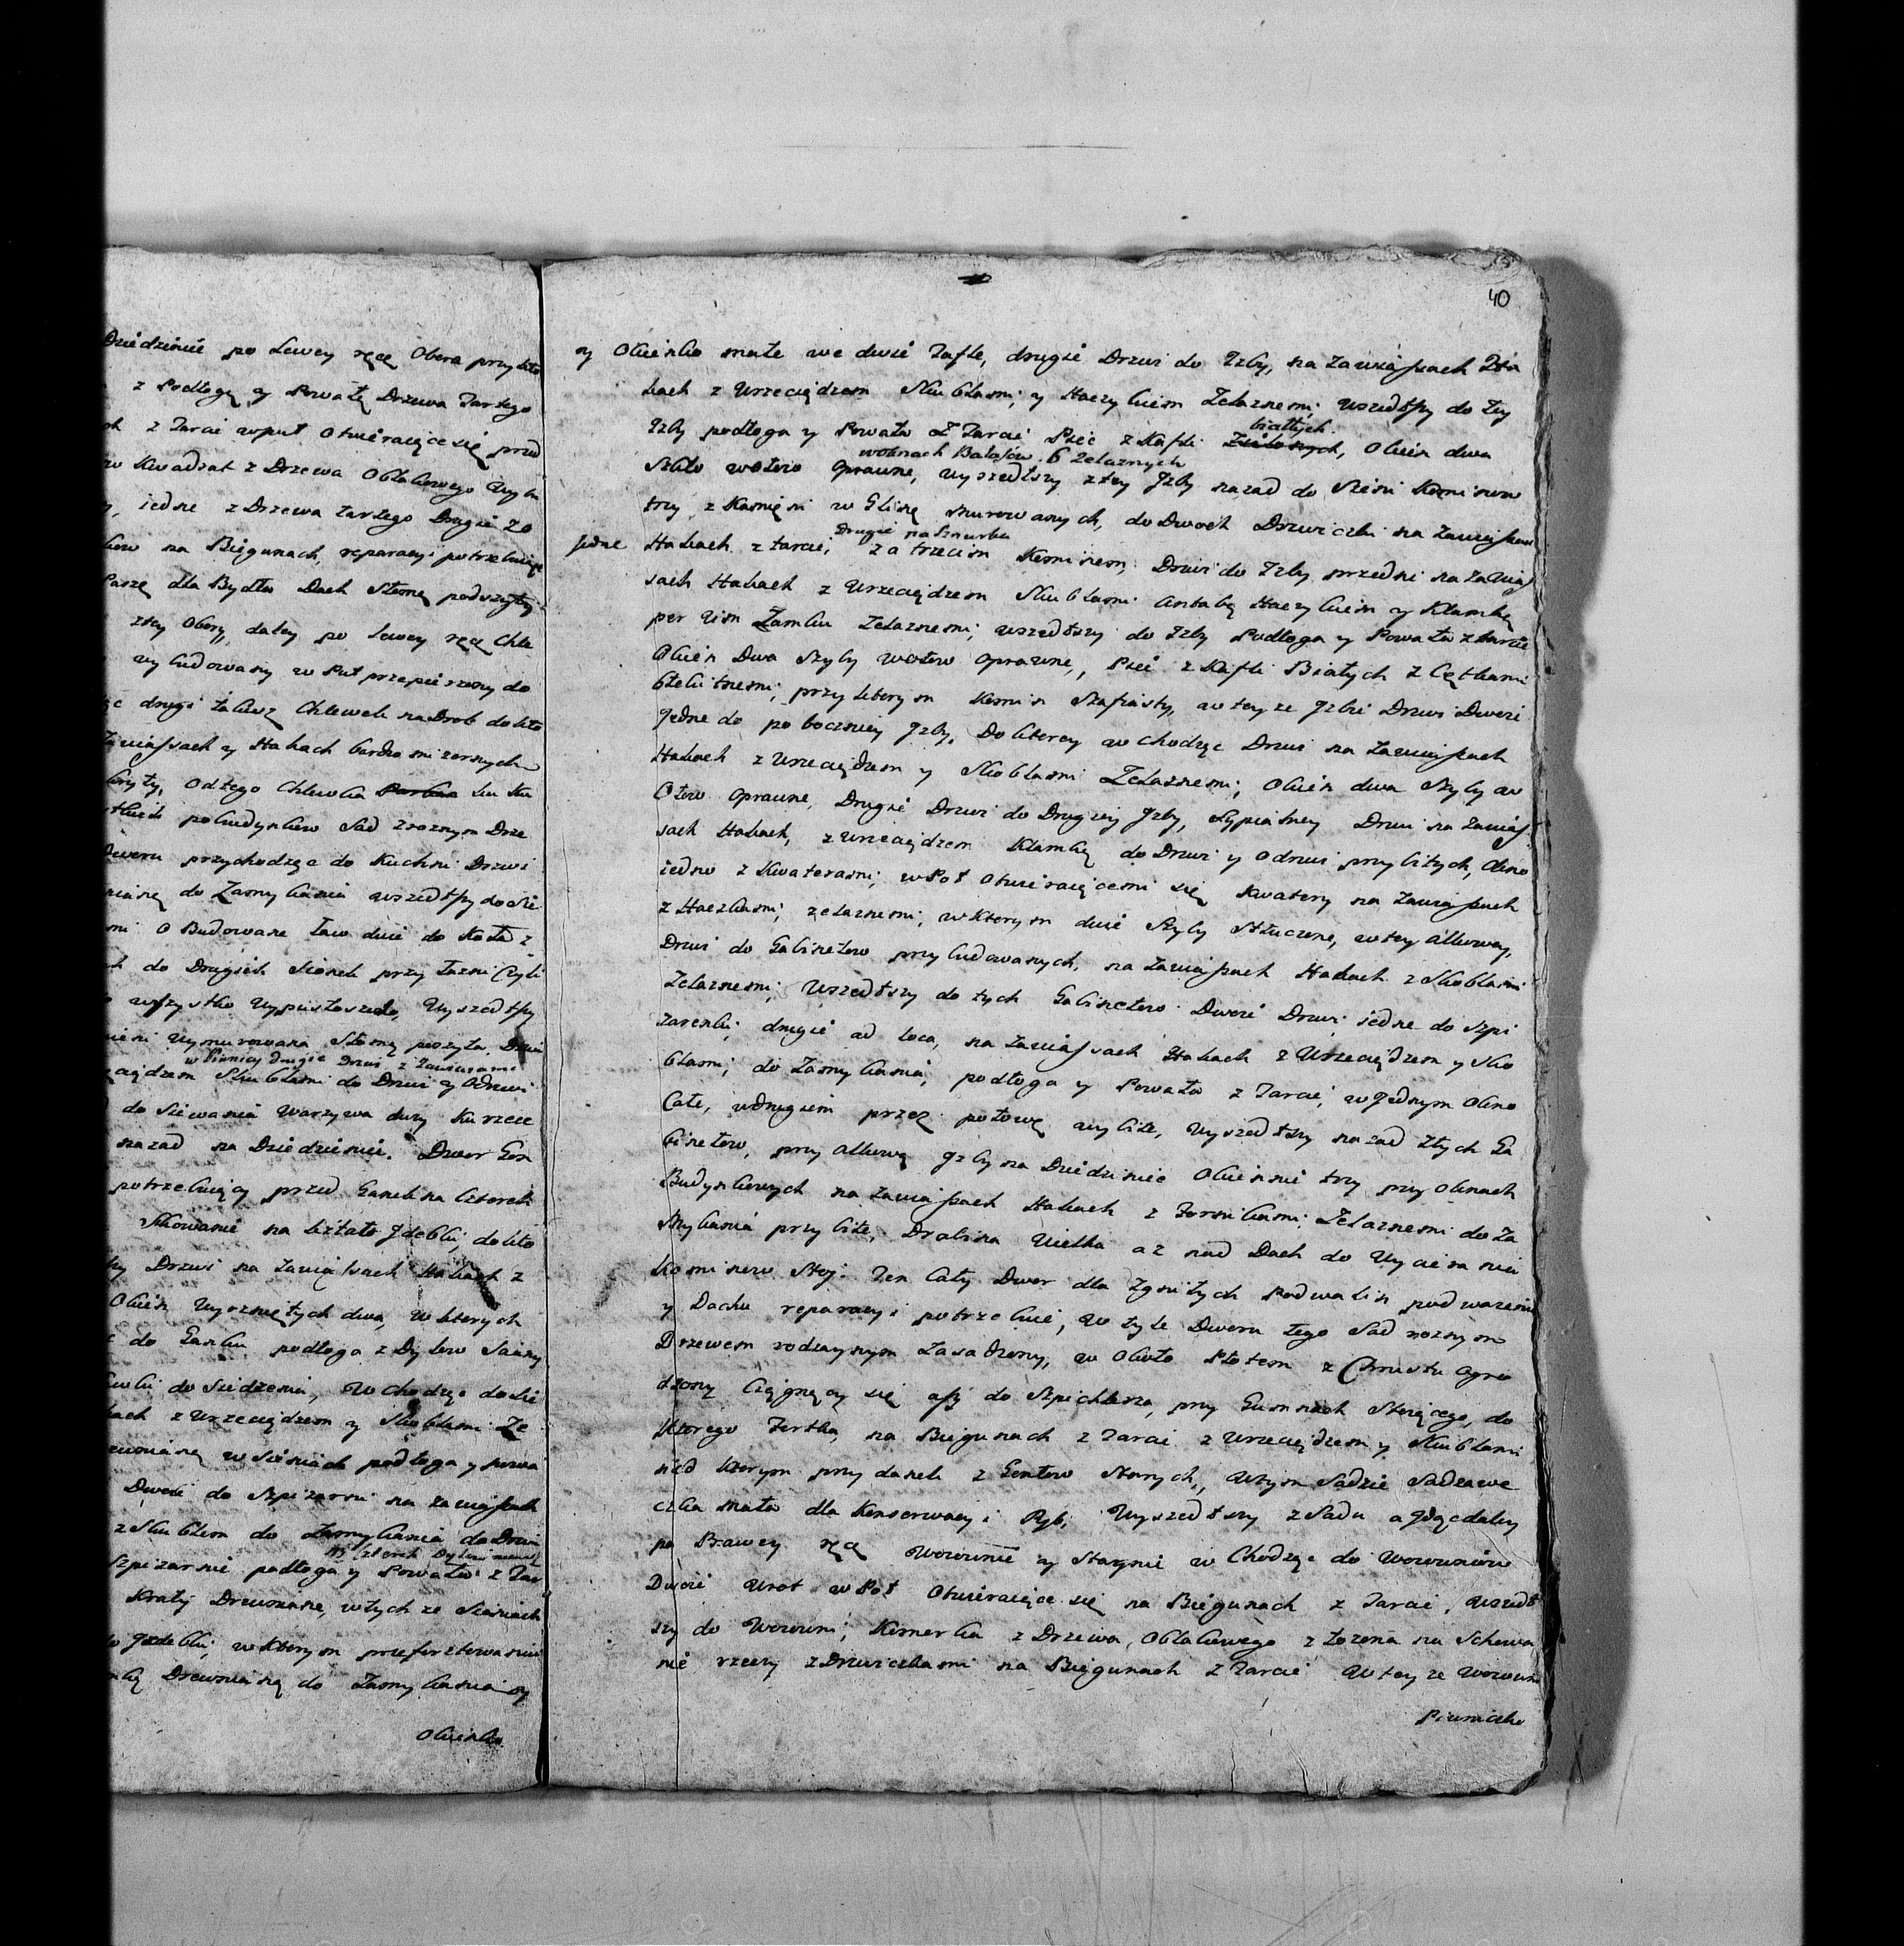 Dziedzińcu po Lewey ręce Obora przy kto
z Podłogą y Powałą Drzewa Tartego
z Tarcic wpuł Otwieraięce się przed
w Kwadrat z Drzewa Okrąkowego
iedne z Drzewa tartego Drugie zo
na Biegunach, reparacyi potrzebuiące
Paszę dla Bydła Dach Słomą podszyty
ztey Obory, daley po lewey ręce Chle
wybudowany w Puł przepierzony do
drugi takiesz Chlewek na Drob do kto
Zawiassach y Hakach bardzo mizernych
Odtego Chlewka
pobudynkow Sad z roznym Drze
Dworu przychodząc do Kuchni Drzwi
do Zamykania wszedłszy do Sie
o Budowane Ław dwie do Koła z
do Drugich Sionek przy Łazni Czyli
wszystko wypustoszało, Wyszedłszy
Wymurowana Słomą poszyta, Drzwi
w Piwnicy drugie Drzwi z Zawiasami
Skublami do Drzwi y Odrzwi
do Siewania Warzywa
nazad na Dziedziniec. Dwor
potrzebuiący przed Ganek na czterech
na kształt Jzdebki, do kto
Drzwi na Zawiasach Hakach z
Okien Wyrzniętych dwa, w ktorych
do Ganku podłoga z Dylow
do Siedzenia, Wchodząc do Sie
z Wrzeciądzem y Skoblami Że
w Sieniach podłoga y powa
Dwoie do Szpizarni na zawiassach
z Skublem do Zamykania do Drzwi
Szpizarnie podłoga y Powała z Tar
Kraty Drewniane, w tych ze Sieniach
Jzdebki, w ktorym przeforsztowaniu
Drewnianą do Zamykania y
Okienko

40
y Okienko małe we dwie Tafle, drugie Drzwi do Jzby, na Zawiassach Ha
kach z Wrzeciądzem Skublami, y Haczykiem Żelaznemi, wszedłszy do tey
białych
Jzby podłoga y Powała z Tarcic Piec z Kafli Zielonych, Okien dwa
w oknach Balasow 6 żelaznych
Szkło w ołow oprawne, wyszedłszy z tey Jzby nazad do Sieni Kominow
trzy z Kamieni w Glinę murowanych, do Dwoch Drzwiczki na Zawiassach
jedne drugie na Sznurku
Hakach z tarcic, za trzecim Kominem, Drzwi do Jzby przedni na Zawias
sach Hakach z Wrzeciądzem Skublami Antabą Haczykiem y Klamką
per Uim Zamku Żelaznemi, wszedłszy do Jzby Podłoga y Powała z tarcic
Okien Dwa Szyby w ołow oprawne, Piec z Kafli Białych z Cętkami
błekitnemi, przy ktorym Komin Szafiasty, w teyze Jzbie Drzwi Dwoie
Jedne do pobocznej Jzby, Do ktorey wchodząc Drzwi na Zawiassach
Hakach z Wrzeciądzem y Skoblami Żelaznemi, Okien dwa Szyby w
Ołow oprawne, Drugie Drzwi do Drugiey Jzby, Sypialney Drzwi na Zawias
sach Hakach, z Wrzeciądzem Klamką do Drzwi y Odrzwi przybitych, Okno
iedno z Kwaterami, w Poł otwieraiącemi się Kwatery na Zawiassach
z Haczkami, żelaznemi, w ktorym dwie Szyby Stłuczone, w tey alkowy,
Drzwi do Gabinetow przybudowanych, na Zawiassach Hakach z Skoblami
Żelaznemi, Wszedłszy do tych Gabinetow Dwoie Drzwi iedne do Szpi
zarenki, drugie ad loca, na Zawiassach Hakach z Wrzeciądzem y Sko
blami, do Zamykania, podłoga y Powała z Tarcic, w Jednym Okno
Całe, w drugiem przez połowę wybite, Wyszedłszy nazad z tych Ga
binetow, przy alkowy Jzby na Dziedziniec Okiennic trzy przy oknach
Budynkowych na Zawiassach Hakach z Forsikami Żelaznemi do Za
mykania przybite, Drabina Wielka aż nad Dach do Wycierania
Kominow Stoj. Ten Cały Dwor dla Zgniłych Podwalin podwazenia
y Dachu reparacyi potrzebuie, w tyle Dworu tego Sad roznym
Drzewem rodzaynym Zasadzony, w Około Płotem z Chrustu ogro
dzony Ciągnący się asz do Szpichlerza, przy Gumnach Stoiącego, do
Ktorego Fortka, na Biegunach z Tarcic z Wrzeciądzem y Skublami
nad ktorym przydanek z Gontow Starych, w tym Sadzie Sadzawe
czka mała dla Konserwacyi Ryb, Wyszedłszy z Sadu a Jdąc daley
po Prawey ręce Wozownie y Staynie w Chodząc do Wozowniow
Dwoie Wrot w Poł Otwieraiące się na Biegunach z Tarcic, wszedł
szy do Wozowni, Komorka z Drzewa, Okrąkowego złożona na Schowa
nie rzeczy z Drzwiczkami na Biegunach z Tarcic W tey ze Wozowni
Piwniczka